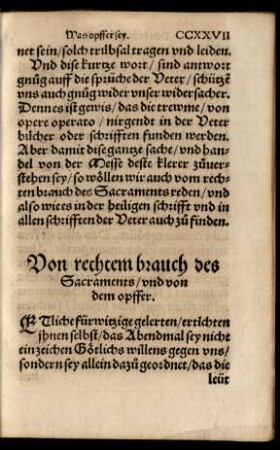 Was opffer sey. CCXXVII
net sein/solch trübsal tragen vnd leiden.
Vnd dise kurtze wort/ sind antwort
gnůg auff die sprüche der Veter/ schützē
vns auch gnůg wider vnser widersacher.
Dennes ist gewis/ das die trewme/ von
opere operato/ nirgendt in der Veter
bücher oder schrifften funden werden.
Aber damit dise gantze sache/ vnd han⸗
del von der Messe deste klerer zůuer⸗
stehen sey/ so wöllen wir auch vom rech⸗
ten brauch des Sacraments reden/ vnd
also wie es in der heiligen schrifft vnd in
allen schrifften der Veter auch zů finden.
Von rechtem brauch des
Sacraments/ vnd von
dem opffer.
ETliche fürwitzige gelerten/ ertichten
jhnen selbst/ das Abendmal sey nicht
ein zeichen Götlichs willens gegen vns/
sondern sey allein dazů geordnet/ das die
leüt